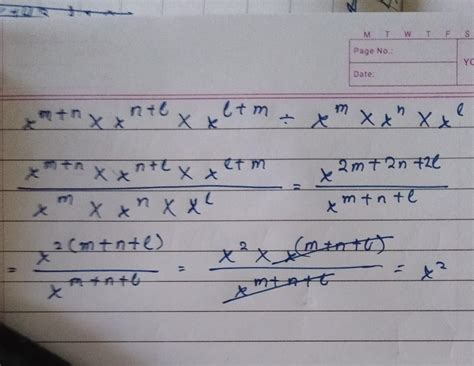 M T W T F S
Page No.:
Date:
YO
x^{m+n} × x^{n+l} × x^{l+m} ÷ x^m × x^n × x^l
\frac{x^{m+n} × x^{n+l} × x^{l+m}}{x^m × x^n × x^l} = \frac{x^{2m+2n+2l}}{x^{m+n+l}}
= \frac{x^{2(m+n+l)}}{x^{m+n+l}} = \frac{x^2 × x^{(m+n+l)}}{x^{m+n+l}} = x^2